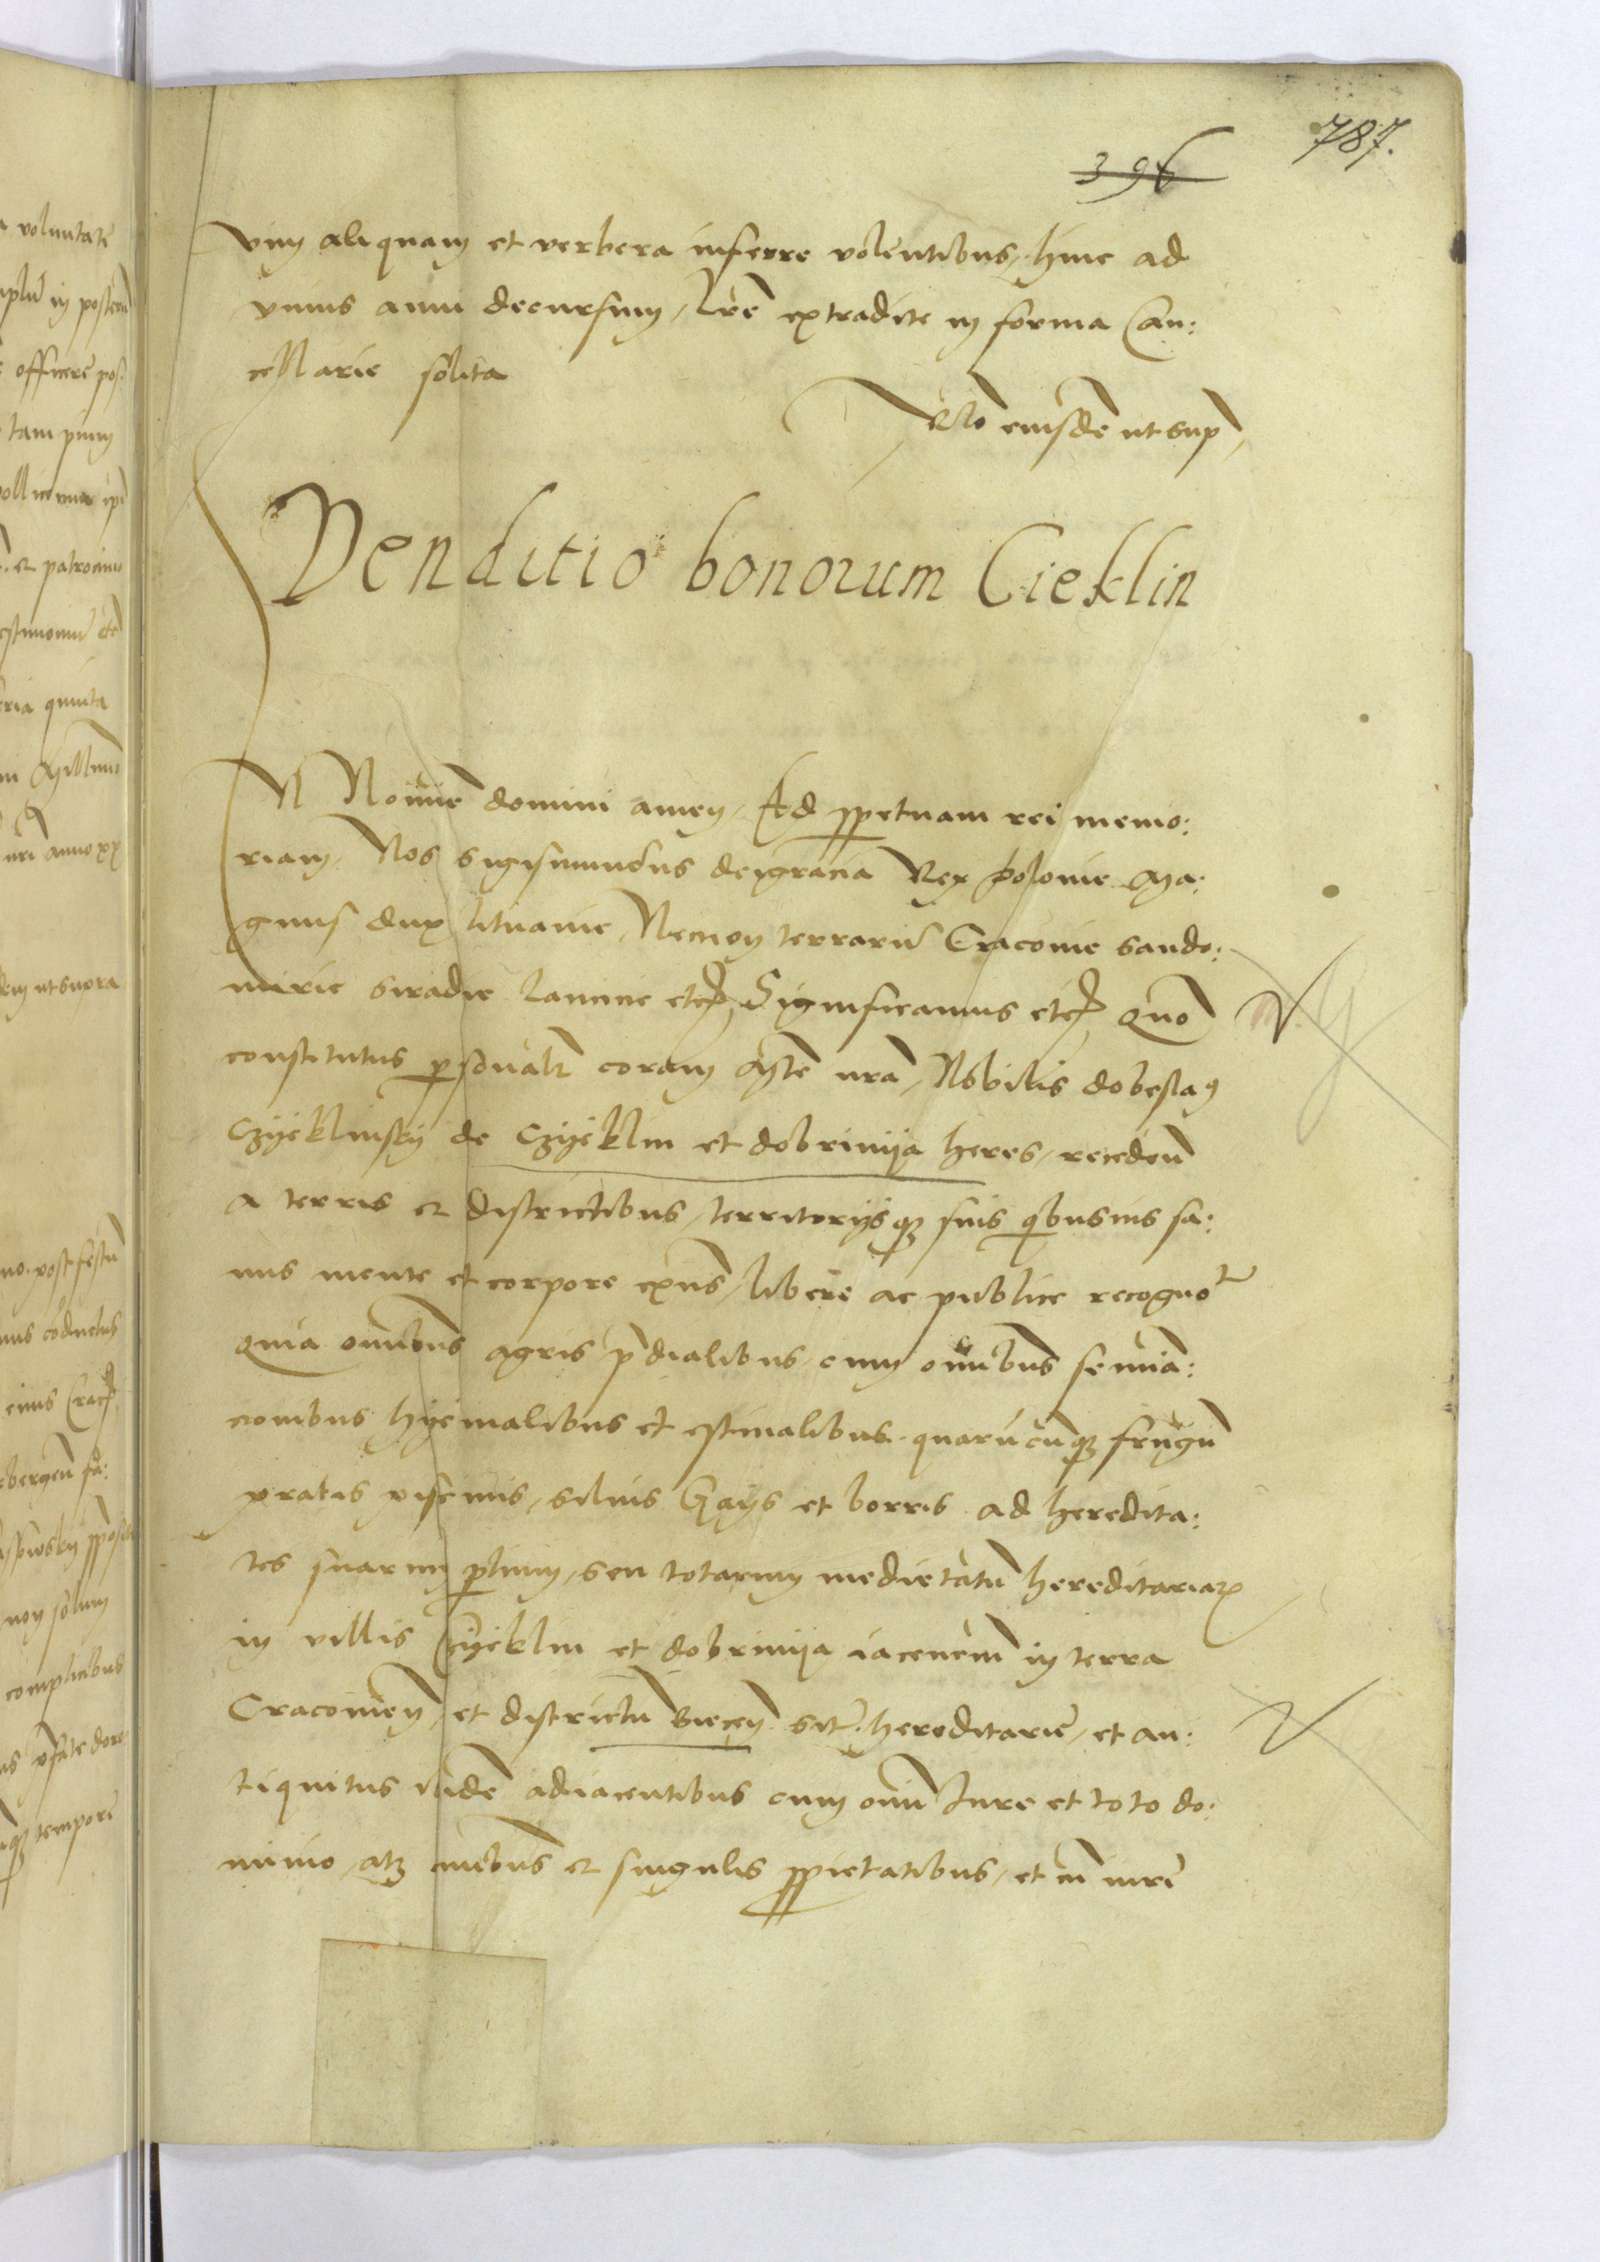 787.
396
vim aliquam et verbera inferre volentibus, hinc ad
vnius anni decursum, lrẽ extradite in forma Can:
cellarie solita
eiusdẽ ut sup
Venditio bonorum Cieklin
IN Nomine domini amen, Ad ppetuam rei memo:
riam, Nos Sigismundus dei gracia Rex polonie Ma:
gnus dux lituanie, Necnon terrarũ Cracouie sando:
mirie Siradie Lancicie etc Significamus etc Quõ
constitutus psonalr coram Mte nra, Nobilis dobeslaus
Czyeklinsky de Czyeklin et dobrinya heres, recedeñ
a terris et districtibus, territorijsq suis qbusuis sa:
nus mente et corpore exñs, libere ac publice recognoᵗ
Quia omibus agris pdialibus, cum omibus semina:
cionibus hyemalibus et estiualibus quarucũq frugũ
pratis piscinis, siluis Gays et borris ad heredita:
tes suarum pcium, seu totarum medietatũ hereditariarꝫ
in villis Czyeklin et dobrinya iaceneñ in terra
Cracouieñ et districtu Bieceñ sitᵉ hereditarie, et an:
tiquitus ibidẽ adiacentibus cum omi Iure et toto do:
minio, atq omibus et singulis ppietatibus, et in iure
voluntatẽ
in posterũ
officere pos:
tam pium
et patrocinio
feria quinta
nri anno xx
ut supra
post festũ
eius Crac
non solum
complicibus
tempore